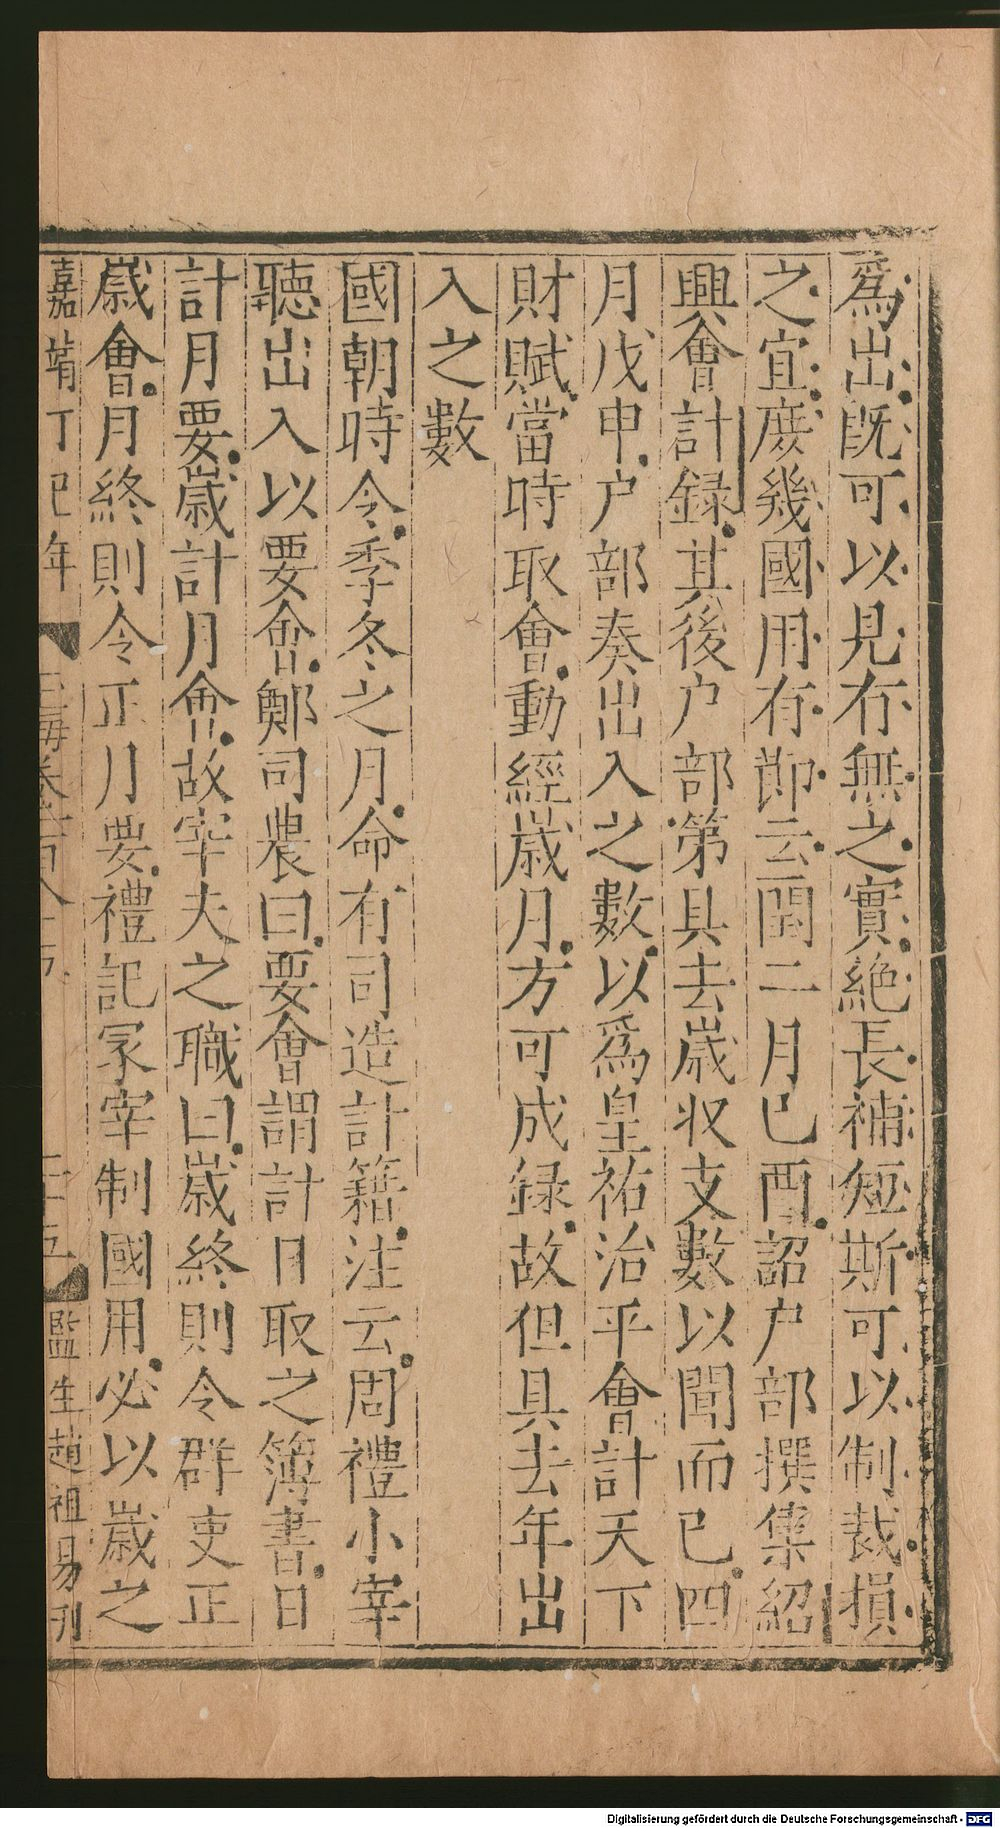 爲出既可以見有無之實絶長補短斯可以制裁損
之宜庶幾國用有節云閏二月己酉詔户部撰集紹
興會計録其後户部第具去歳收支數以聞而已四
月戊申户部奏出入之數以爲皇祐治平會計天下
財賦當時取會動經歳月方可成録故但具去年出
入之數
國朝時令季冬之月命有司造計籍注云周禮小宰
聽出入以要會鄭司農曰要會謂計日取之簿書日
計月要歳計月會故宰夫之職曰歳終則令群吏正
歳會月終則令正月要禮記冢宰制國用必以歳之
嘉靖丁巳年 玉海卷百八十五 二十五 監生趙祖易刊
Digitalisierung gefördert durch die Deutsche Forschungsgemeinschaft - DFG